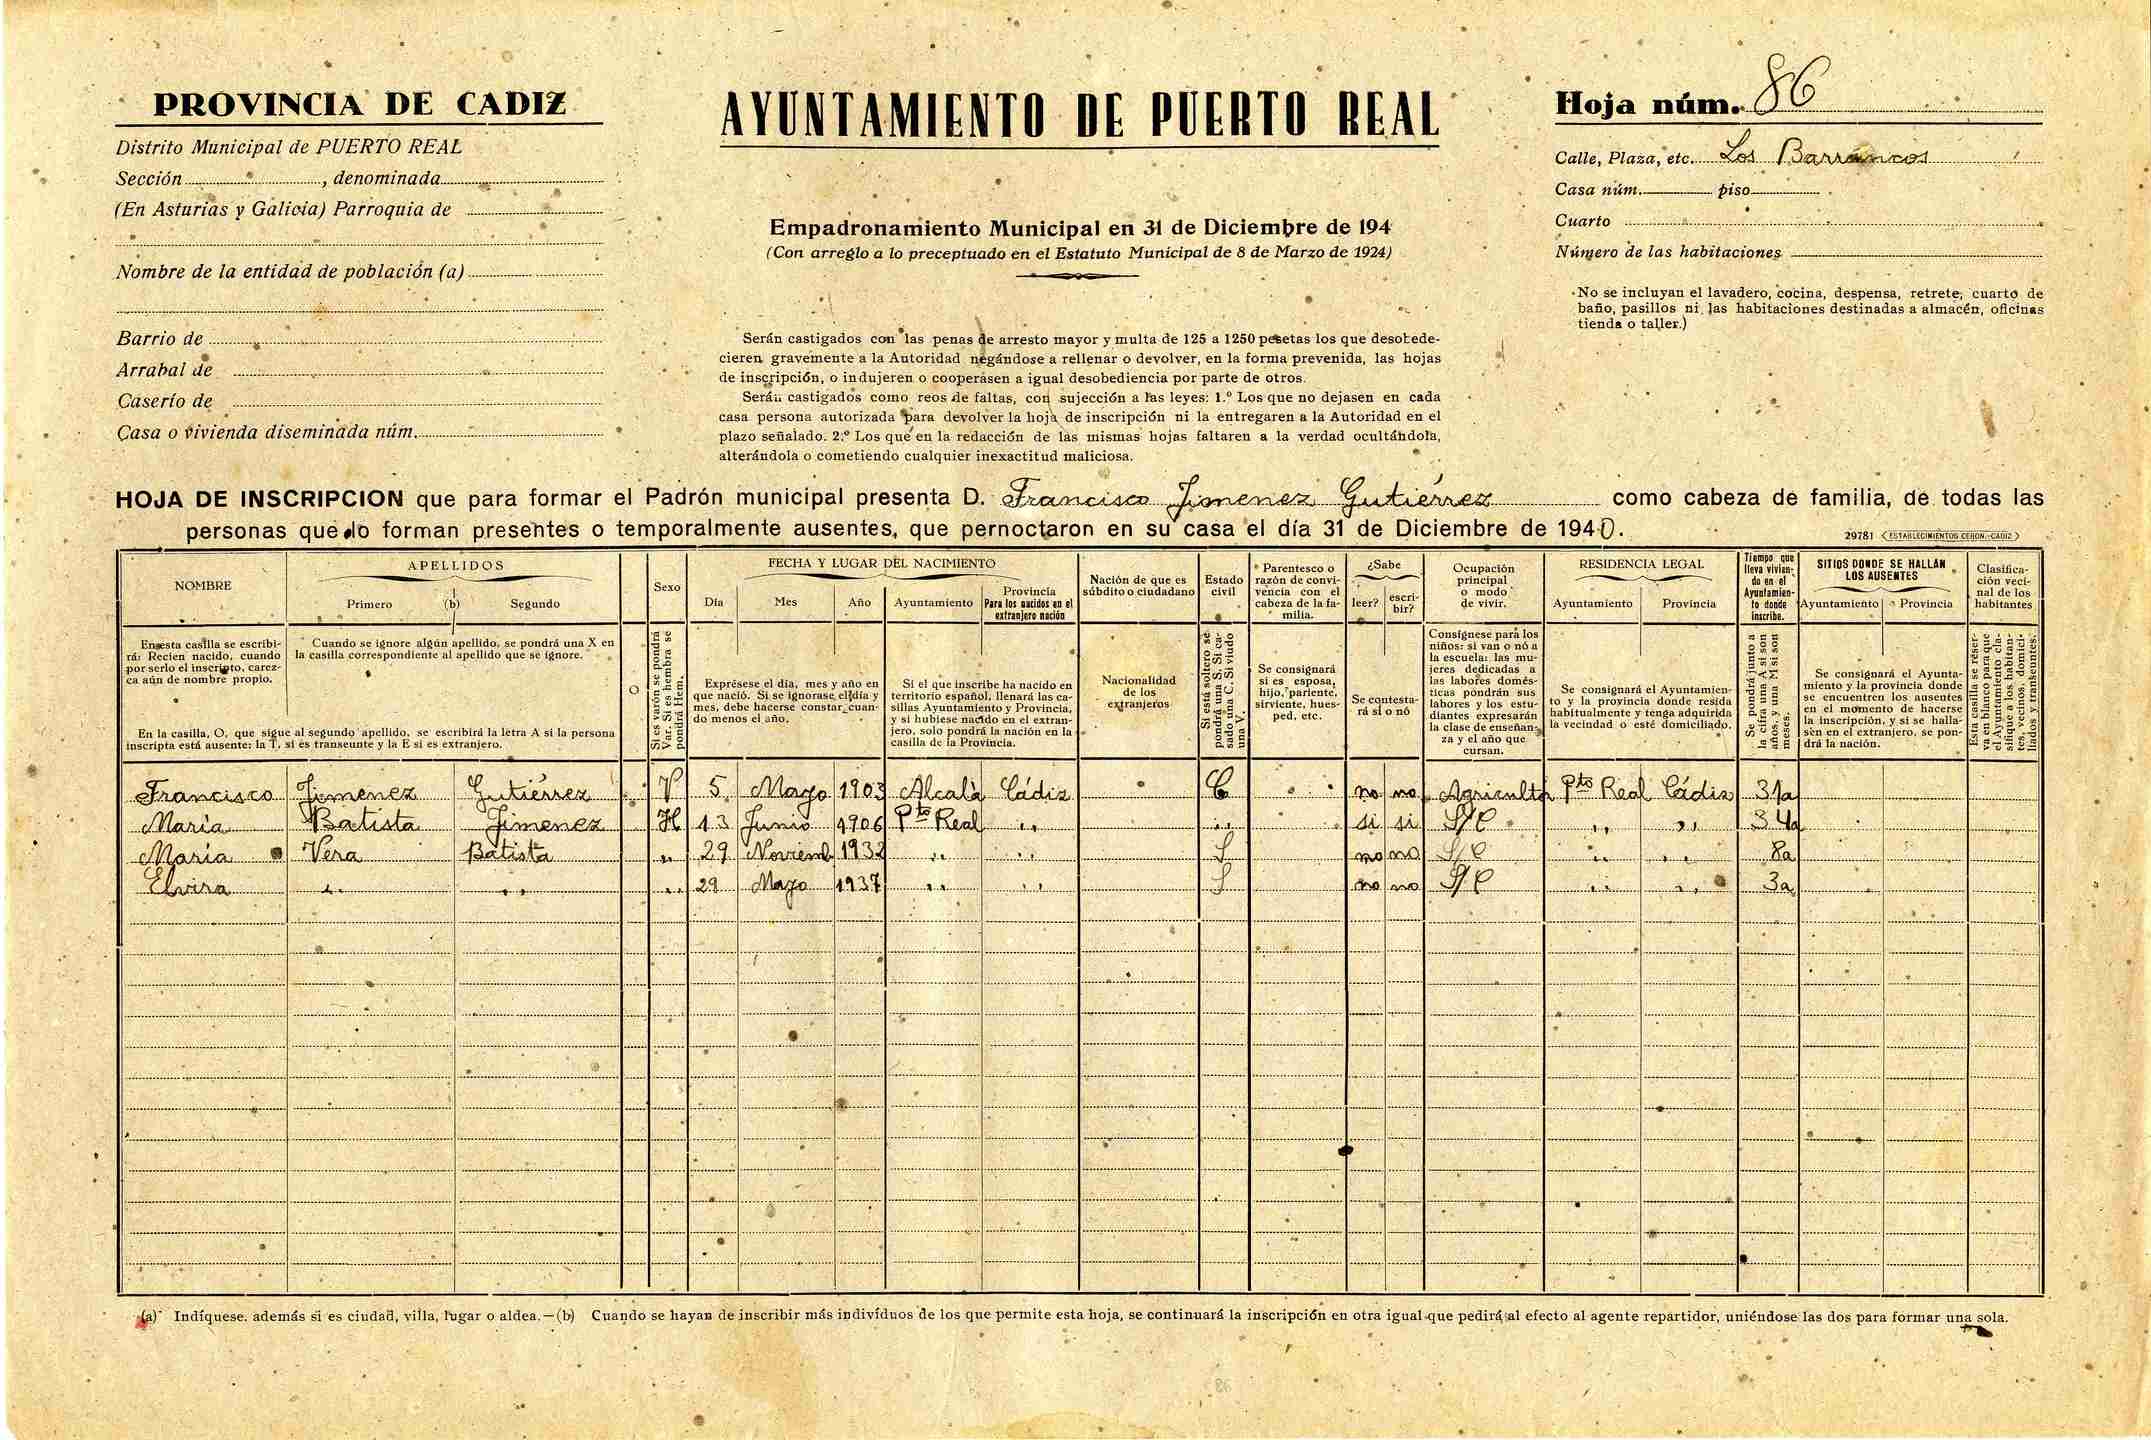 PROVINCIA DE CADIZ
Distrito Municipal de PUERTO REAL
Sección , denominada
(En Asturias y Galicia) Parroquia de
Nombre de la entidad de población (a)
Barrio de
Arrabal de
Caserío de
Casa o vivienda diseminada núm.
AYUNTAMIENTO DE PUERTO REAL
Empadronamiento Municipal en 31 de Diciembre de 194
(Con arreglo a lo preceptuado en el Estatuto Municipal de 8 de Marzo de 1924)
Serán castigados con las penas de arresto mayor y multa de 125 a 1250 pesetas los que desobede-
cieren gravemente a la Autoridad negándose a rellenar o devolver, en la forma prevenida, las hojas
de inscripción, o indujeren o cooperasen a igual desobediencia por parte de otros.
Serán castigados como reos de faltas, con sujección a las leyes: 1.º Los que no dejasen en cada
casa persona autorizada para devolver la hoja de inscripción ni la entregaren a la Autoridad en el
plazo señalado. 2.º Los que en la redacción de las mismas hojas faltaren a la verdad ocultándola,
alterándola o cometiendo cualquier inexactitud maliciosa.
Hoja núm. 86
Calle, Plaza, etc. Los Barrancos
Casa núm. piso
Cuarto
Número de las habitaciones
No se incluyan el lavadero, cocina, despensa, retrete, cuarto de
baño, pasillos ni las habitaciones destinadas a almacén, oficinas
tienda o taller.)
HOJA DE INSCRIPCION que para formar el Padrón municipal presenta D. Francisco Jimenez Gutiérrez como cabeza de familia, de todas las
personas que lo forman presentes o temporalmente ausentes, que pernoctaron en su casa el día 31 de Diciembre de 1940.
29781 ESTABLECIMIENTOS CERON.-CADIZ
NOMBRE
APELLIDOS
Primero (b) Segundo
Sexo
FECHA Y LUGAR DEL NACIMIENTO
Día Mes Año Ayuntamiento
Provincia
Para los nacidos en el
extranjero nación
Nación de que es
súbdito o ciudadano
Estado
civil
Parentesco o
razón de convi-
vencia con el
cabeza de la fa-
milia.
¿Sabe
leer? escri-
bir?
Ocupación
principal
o modo
de vivir.
RESIDENCIA LEGAL
Ayuntamiento Provincia
Tiempo que
lleva vivien-
do en el
Ayuntamien-
to donde
inscribe.
SITIOS DONDE SE HALLAN
LOS AUSENTES
Ayuntamiento Provincia
Clasifica-
ción veci-
nal de los
habitantes
En esta casilla se escribi-
rá: Recien nacido, cuando
por serlo el inscripto, carez-
ca aún de nombre propio.
Cuando se ignore algún apellido, se pondrá una X en
la casilla correspondiente al apellido que se ignore.
En la casilla, O, que sigue al segundo apellido, se escribirá la letra A si la persona
inscripta está ausente: la T, si es transeunte y la E si es extranjero.
O
Si es varón se pondrá
Var. Si es hembra se
pondrá Hem.
Exprésese el día, mes y año en
que nació. Si se ignorase el día y
mes, debe hacerse constar cuan-
do menos el año.
Si el que inscribe ha nacido en
territorio español, llenará las ca-
sillas Ayuntamiento y Provincia,
y si hubiese nacido en el extran-
jero, solo pondrá la nación en la
casilla de la Provincia.
Nacionalidad
de los
extranjeros
Si está soltero se
pondrá una S. Si ca-
sado una C. Si viudo
una V.
Se consignará
si es esposa,
hijo, pariente,
sirviente, hues-
ped, etc.
Se contesta-
rá sí o nó
Consígnese para los
niños: si van o nó a
la escuela: las mu-
jeres dedicadas a
las labores domés-
ticas pondrán sus
labores y los estu-
diantes expresarán
la clase de enseñan-
za y el año que
cursan.
Se consignará el Ayuntamien-
to y la provincia donde resida
habitualmente y tenga adquirida
la vecindad o esté domiciliado.
Se pondrá junto a
la cifra una A si son
años, y una M si son
meses.
Se consignará el Ayunta-
miento y la provincia donde
se encuentren los ausentes
en el momento de hacerse
la inscripción, y si se halla-
sen en el extranjero, se pon-
drá la nación.
Esta casilla se reser-
va en blanco para que
el Ayuntamiento cla-
sifique a los habitan-
tes, vecinos, domici-
liados y transeuntes.
Francisco Jimenez Gutiérrez V 5 Mayo 1903 Alcalà Cádiz C no no Agricultor Pto Real Cádiz 31a
María Batista Jimenez H 13 Junio 1906 Pto Real " " si si S/C " " 34a
María Vera Batista " 29 Noviemb 1932 " " S no no S/C " " 8a
Elvira " " " 29 Mayo 1937 " " S no no S/C " " 3a
(a) Indíquese además si es ciudad, villa, lugar o aldea.—(b) Cuando se hayan de inscribir más indivíduos de los que permite esta hoja, se continuará la inscripción en otra igual que pedirá al efecto al agente repartidor, uniéndose las dos para formar una sola.
86